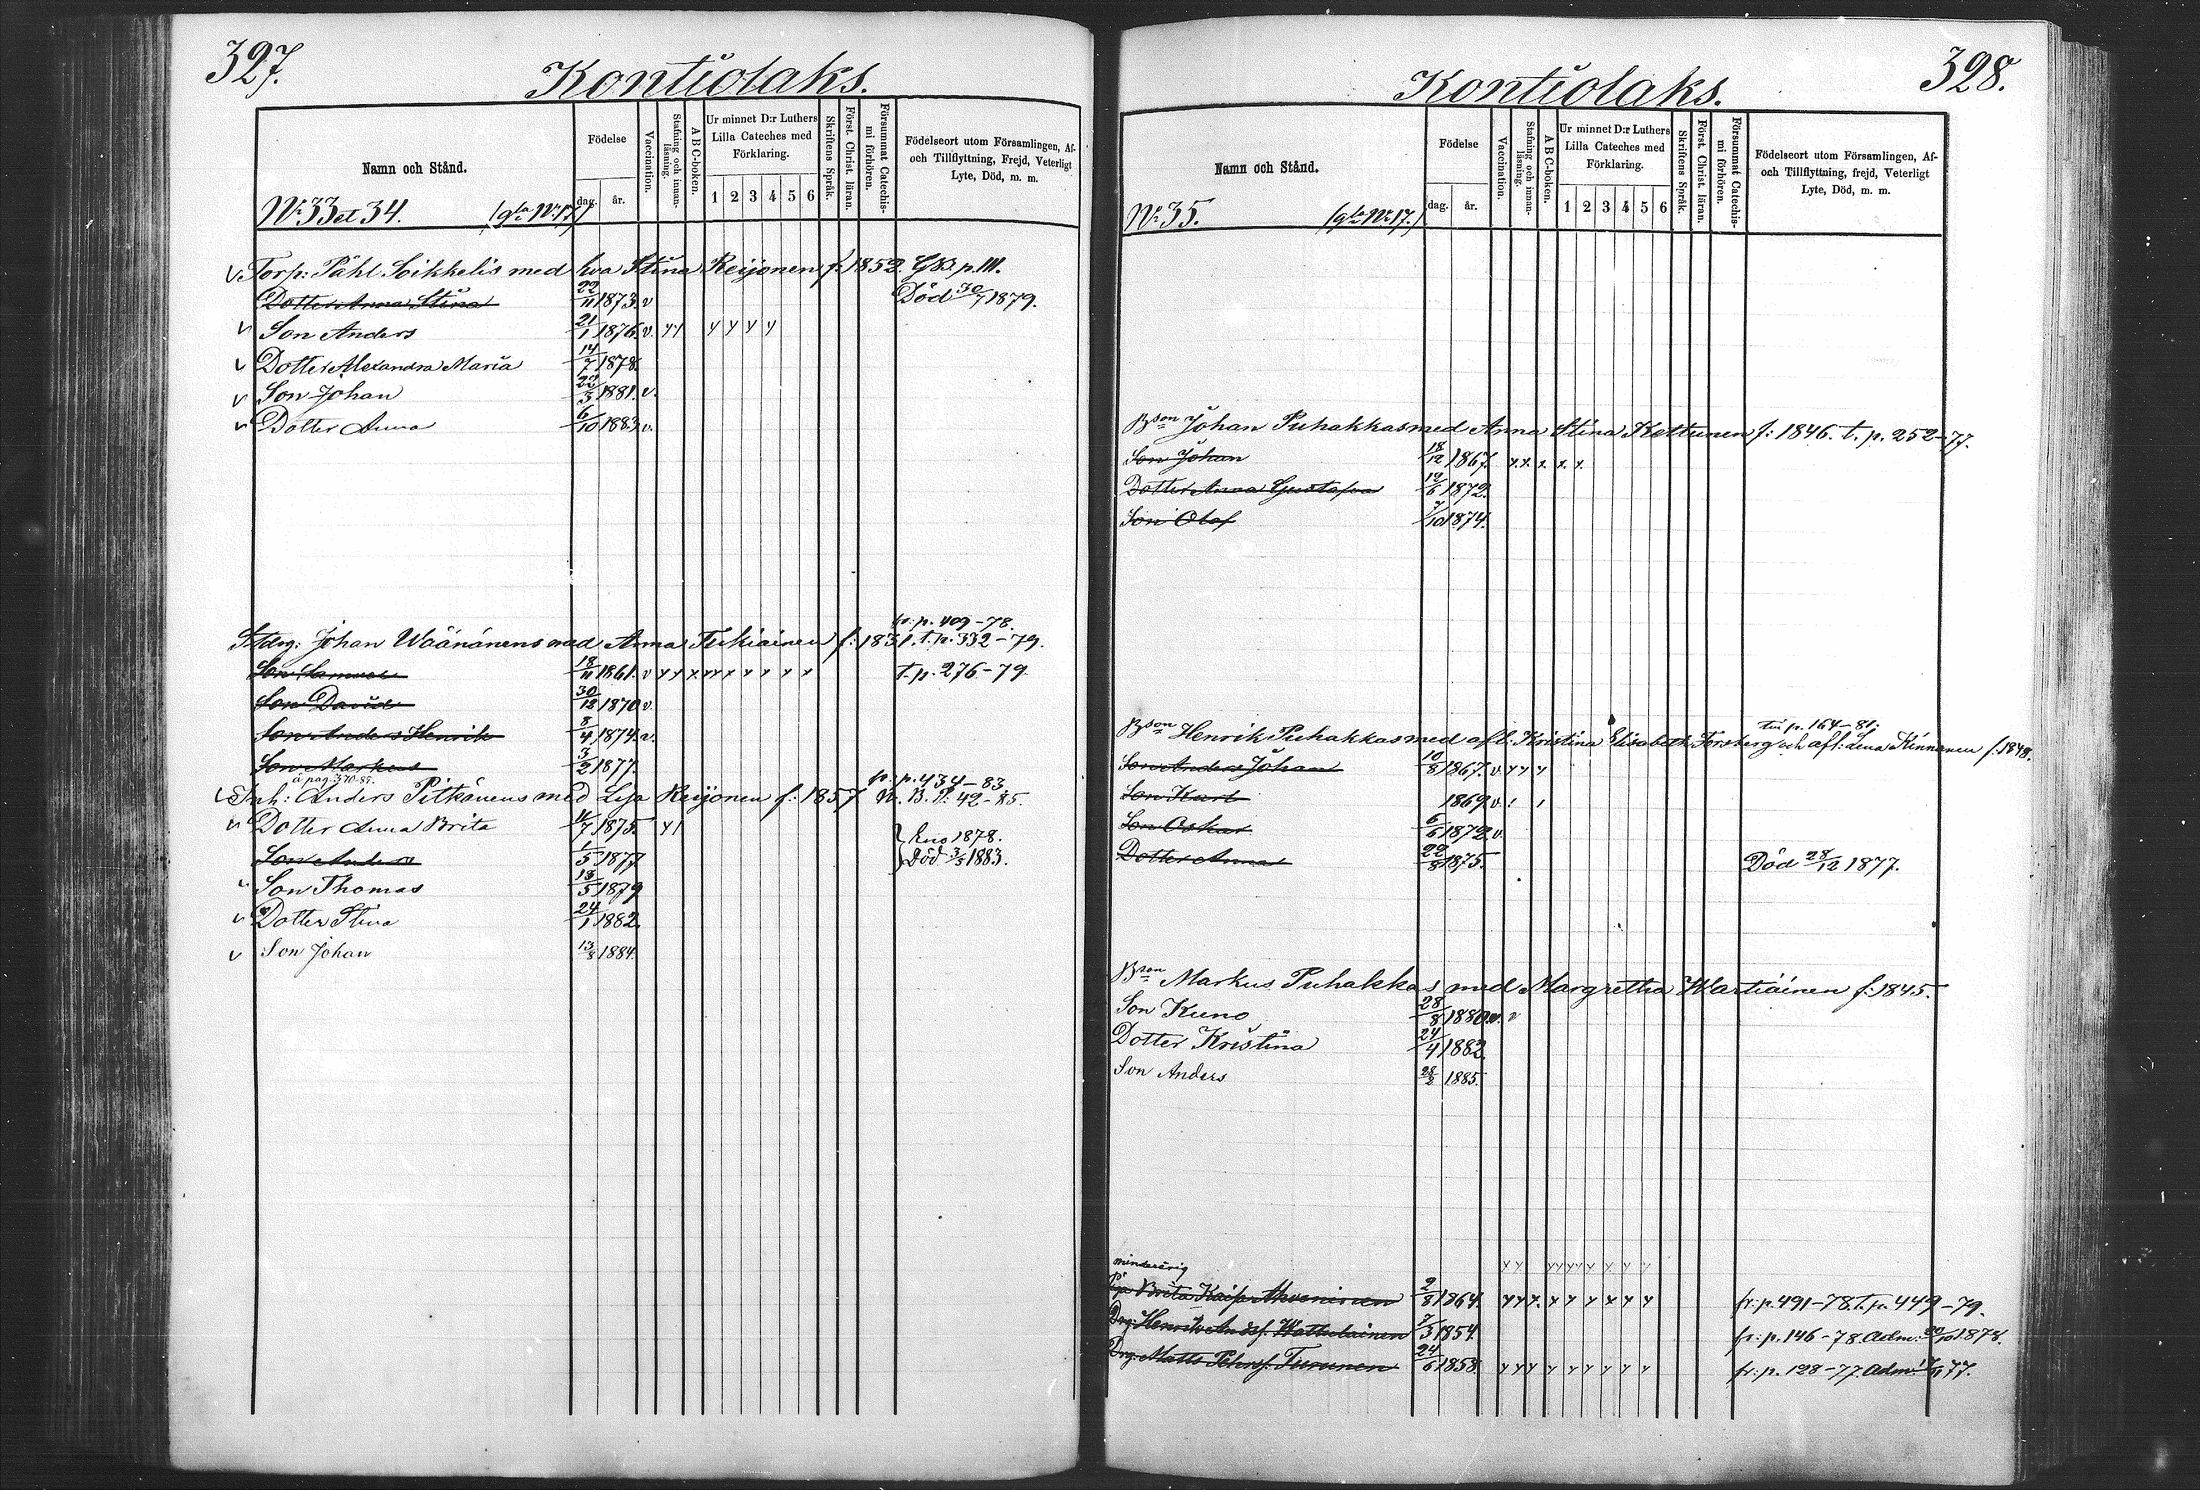 327.
Kontiolaks.
Namn och Stånd.
Födelse
dag. år.
Vaccination.
Stafning och innan-läsning.
ABC-boken.
Ur minnet D:r Luthers Lilla Cateches med Förklaring.
1 2 3 4 5 6
Skriftens Språk.
Först. Christ. läran.
Försummat Catechis-mi förhören.
Födelseort utom Församlingen, Af- och Tillflyttning, Frejd, Veterligt Lyte, Död, m. m.
N:o 33 et 34. (gla N:o 17)
v Torp: Påhl Soikkelis med hva Stina Reijonen f: 1852. GB. p. 111.
Dotter Anna Stina 22/11 1873. v Död 30/7 1879.
v Son Anders 21/1 1876. v.
v Dotter Alexandra Maria 14/7 1878.
v Son Johan 22/3 1881. v.
v Dotter Anna 6/10 1883. v.
fr. p. 409-78.
Johan Wäänänens med Anna Tukiainen f: 1831. t. p. 332-79.
Son Samuel 18/11 1861. v t. p. 276-79.
Son David 30/12 1870. v.
Son Anders Henrik 8/4 1874. v.
Son Markus 3/2 1877.
å pag. 370-85. fr. p. 434-83.
v Inh: Anders Pitkänens med Lisa Reijonen f: 1857 N. B. p. 42-85.
v Dotter Anna Brita 11/7 1875. Eno 1878.
Son Anders 1/5 1877 Död 3/5 1883.
v Son Thomas 13/5 1879
v Dotter Stina 24/1 1882.
v Son Johan 13/8 1884.
328.
Kontiolaks.
Namn och Stånd.
Födelse
dag. år.
Vaccination.
Stafning och innan-läsning.
ABC-boken.
Ur minnet D:r Luthers Lilla Cateches med Förklaring.
1 2 3 4 5 6
Skriftens Språk.
Först. Christ. läran.
Försummat Catechis-mi förhören.
Födelseort utom Församlingen, Af- och Tillflyttning, frejd, Veterligt Lyte, Död, m. m.
N:o 35. (gla N:o 17.)
Bson Johan Puhakkas med Anna Stina Kettunen f: 1846. t. p. 252-77.
Son Johan 18/12 1867.
Dotter Anna Gustafva 19/6 1872.
Son Olof 7/10 1874.
till p. 164-81.
Bson Henrik Puhakkas med afl: Kristina Elisabeth Forsberg och afl: Lena Kinnanen f. 1848.
Son Anders Johan 10/8 1867. v
Son Karl 1869. v.
Son Oskar 6/6 1872. v.
Dotter Anna 22/8 1875. Död 28/12 1877.
Bson Markus Puhakkas med Margretha Wartiainen f: 1845.
Son Kuno 28/8 1880. v. v
Dotter Kristina 24/4 1882.
Son Anders 28/2 1885.
minderårig
Brita Kaisa Ahvenainen 2/8 1864. fr. p. 491-78. t. p. 449-79.
Drg: Henrik Andsf. Wattulainen 7/3 1854. fr: p. 146-78. Adm: 20/10 1878.
Drg: Matts Pehrsf. Turunen 24/6 1858. fr: p. 128-77. Adm: 77.